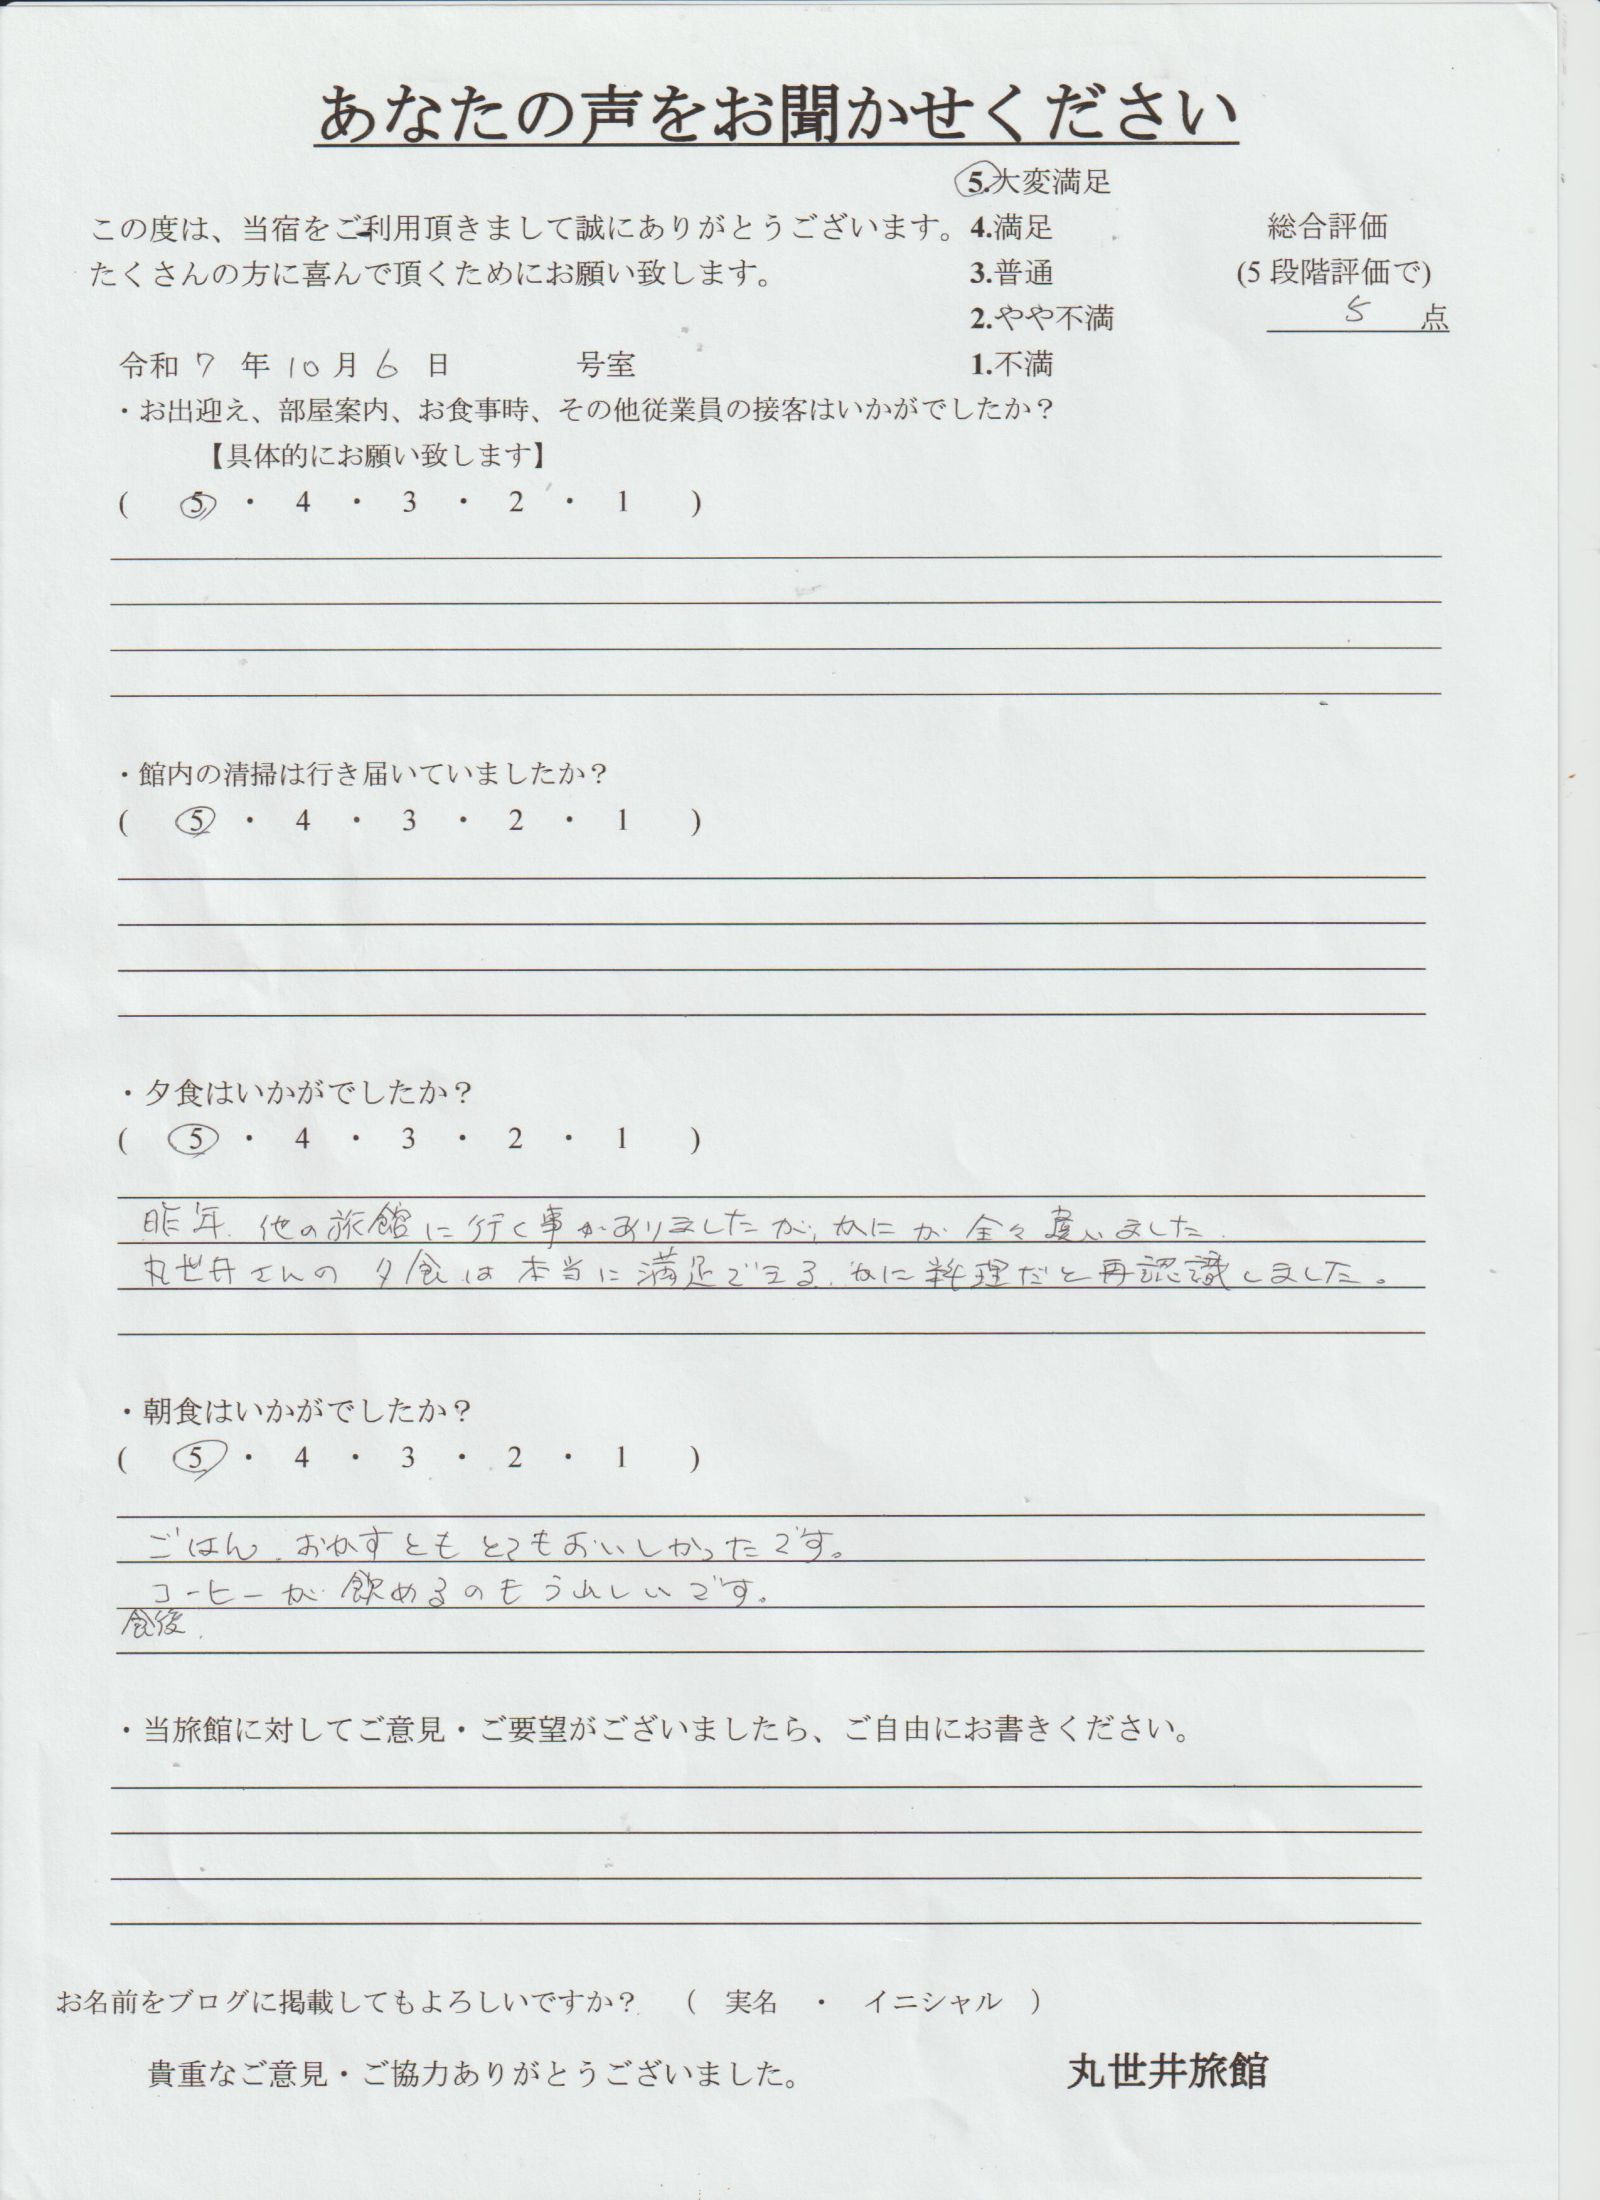 あなたの声をお聞かせください
5.大変満足
この度は、当宿をご利用頂きまして誠にありがとうございます。 4.満足 総合評価
たくさんの方に喜んで頂くためにお願い致します。 3.普通 (5 段階評価で)
2.やや不満 5 点
令和 7 年 10 月 6 日 号室 1.不満
・お出迎え、部屋案内、お食事時、その他従業員の接客はいかがでしたか？
【具体的にお願い致します】
( 5 ・ 4 ・ 3 ・ 2 ・ 1 )
・館内の清掃は行き届いていましたか？
( 5 ・ 4 ・ 3 ・ 2 ・ 1 )
・夕食はいかがでしたか？
( 5 ・ 4 ・ 3 ・ 2 ・ 1 )
昨年、他の旅館に行く事がありましたが、かにが全々違いました。
丸世井さんの夕食は本当に満足できる、かに料理だと再認識しました。
・朝食はいかがでしたか？
( 5 ・ 4 ・ 3 ・ 2 ・ 1 )
ごはん、おかずともとてもおいしかったです。
コーヒーが飲めるのもうれしいです。
食後、
・当旅館に対してご意見・ご要望がございましたら、ご自由にお書きください。
お名前をブログに掲載してもよろしいですか？ ( 実名 ・ イニシャル )
貴重なご意見・ご協力ありがとうございました。 丸世井旅館